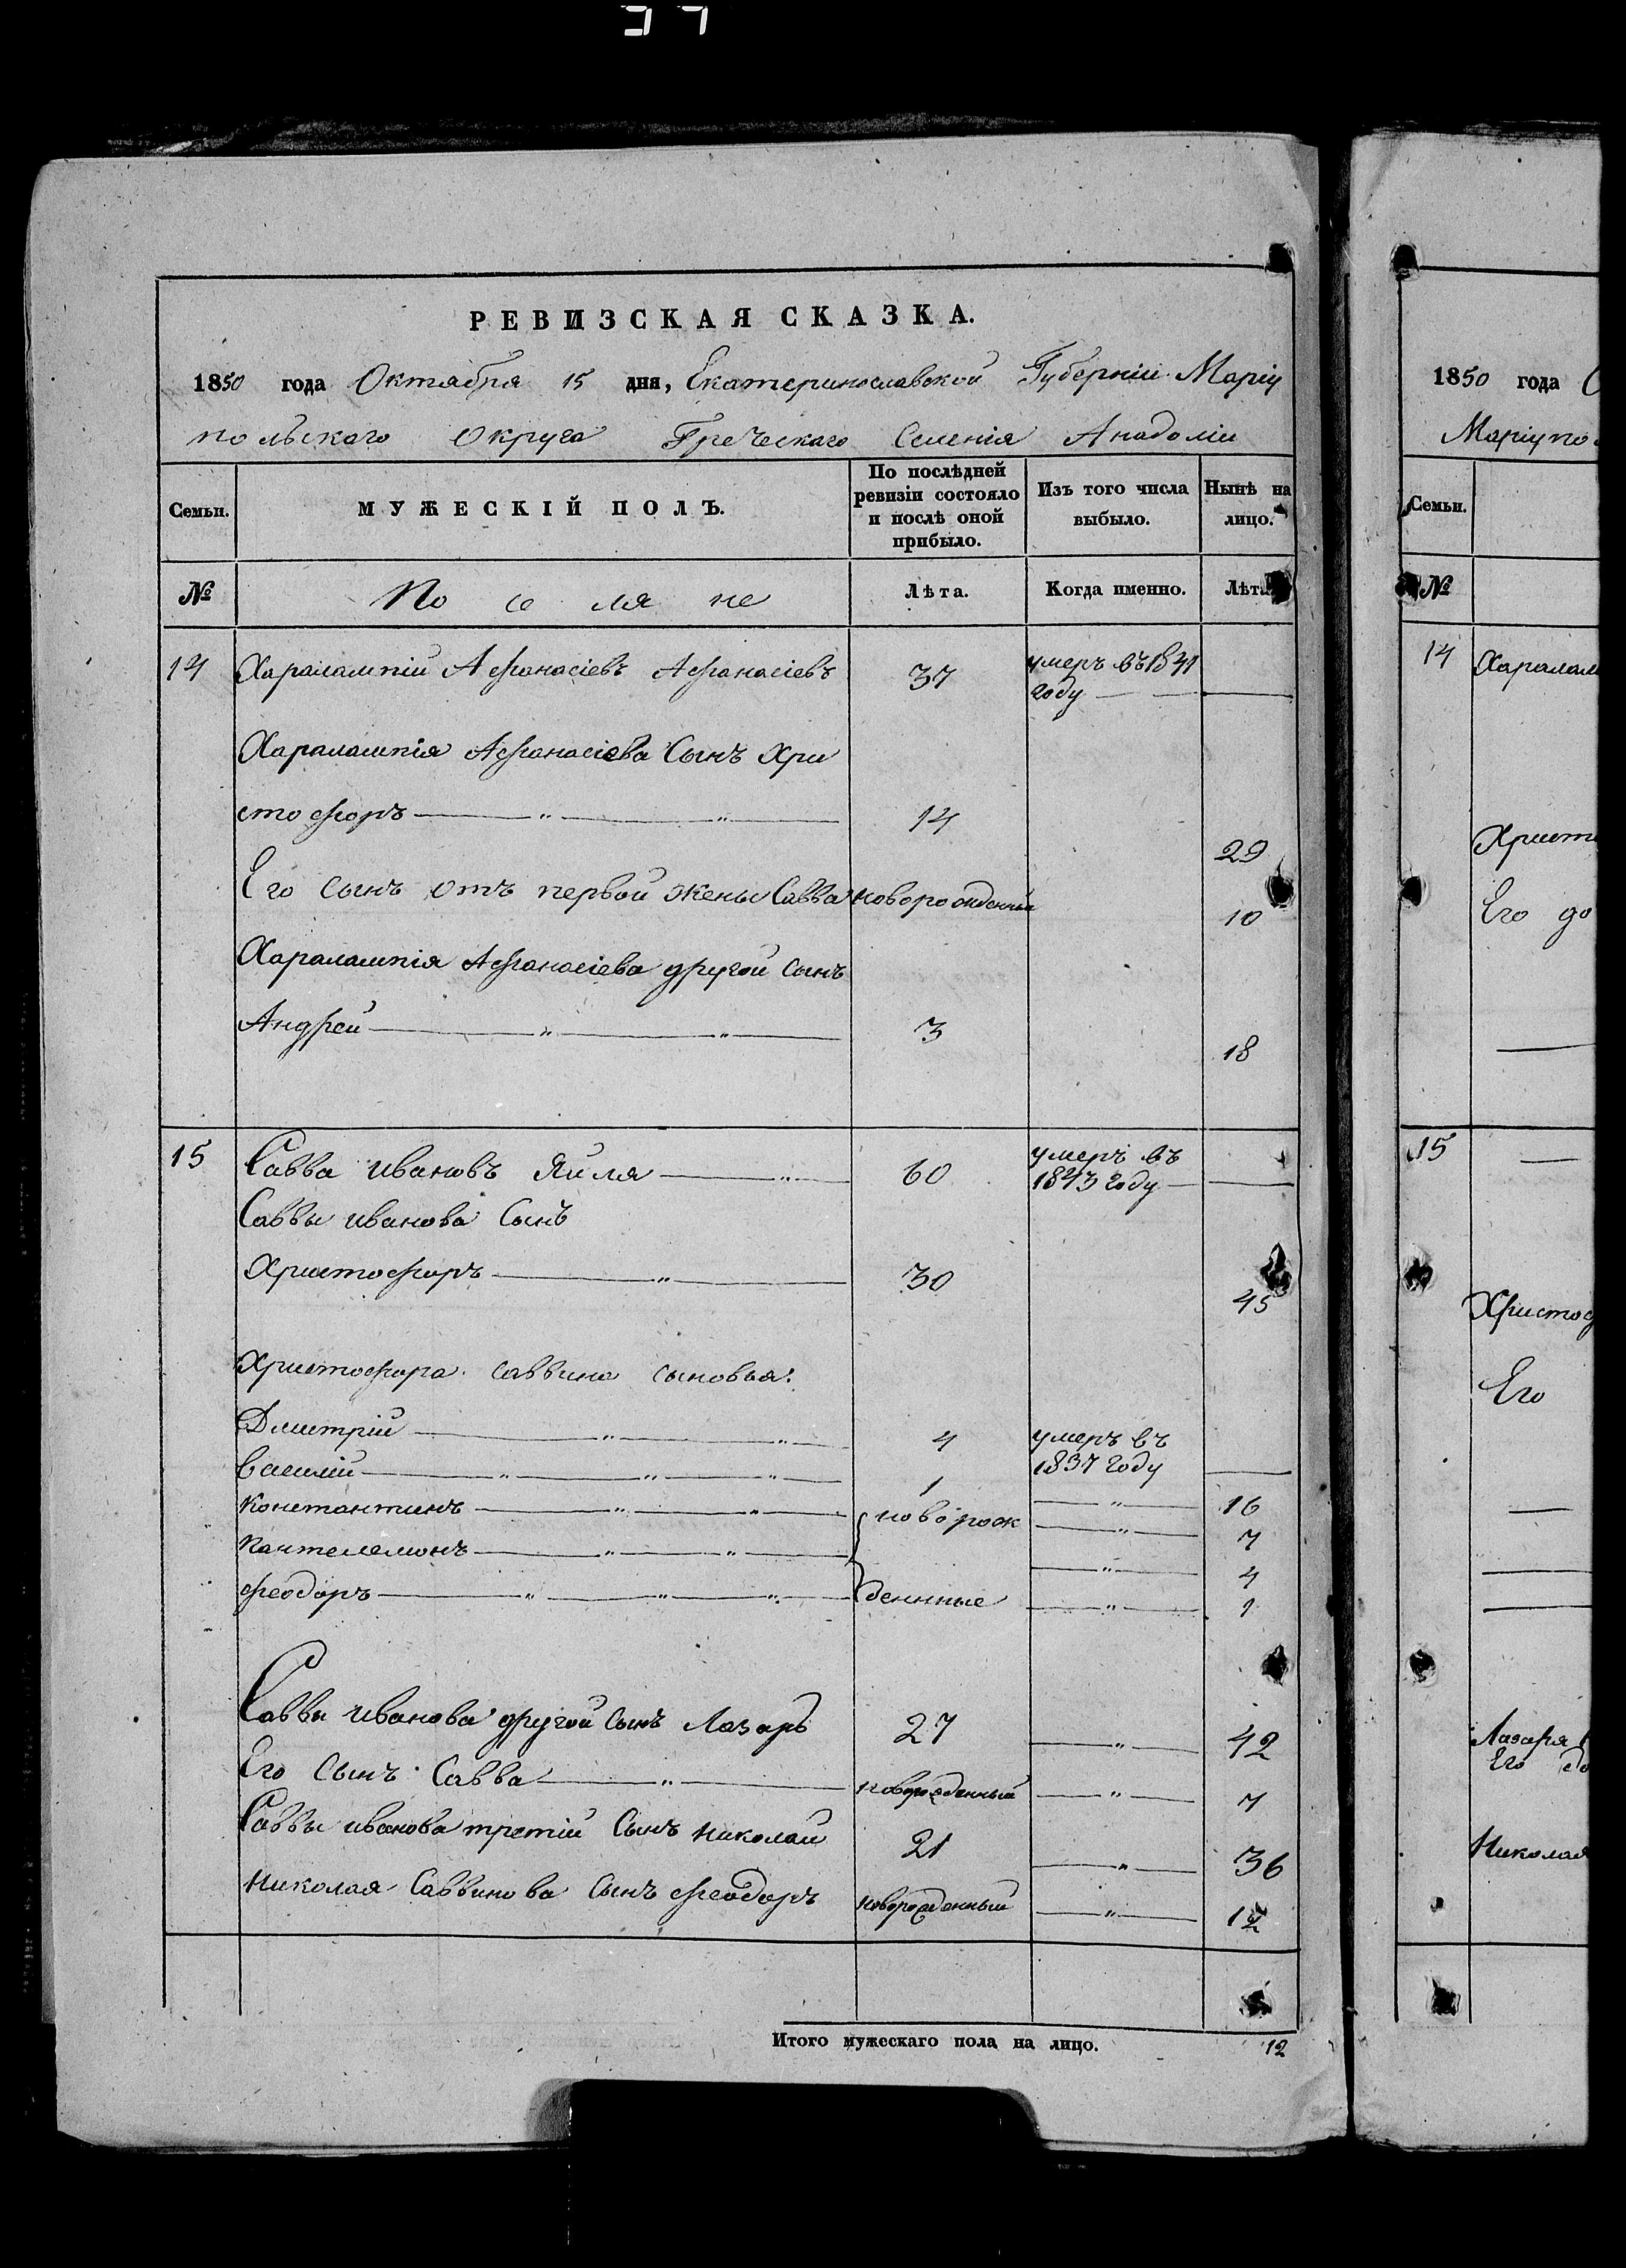 РЕВИЗСКАЯ СКАЗКА.
1850 года Октября 15 дня, Екатеринославской Губерніи Маріу
польскаго Округа Греческаго Селенія Анадоліи
Семьи. МУЖЕСКІЙ ПОЛЪ. По послѣдней ревизіи состояло и послѣ оной прибыло. Изъ того числа выбыло. Нынѣ на лицо.
№ Поселяне Лѣта. Когда именно. Лѣта
14 Харалампій Афанасіевъ Афанасіевъ 37 умеръ въ 1841
году
Харалампія Афанасіева Сынъ Хри
стофоръ 14 29
Его сынъ отъ первой жены Савва новорожденный 10
Харалампія Афанасіева другой сынъ
Андрей 3 18
15 Савва Ивановъ Яйля 60 умеръ въ
1843 году
Саввы Иванова Сынъ
Христофоръ 30 45
Христофора Саввина сыновья:
Дмитрій 4 умеръ въ
1837 году
Василій 1 16
Константинъ новорож 7
Пантелемонъ 4
Феодоръ денные 1
Саввы Иванова другой сынъ Лазарь 27 42
Его Сынъ Савва новорожденный 7
Саввы Иванова третій Сынъ Николай 21 36
Николая Саввинова Сынъ Феодоръ новорожденный 12
Итого мужескаго пола на лицо. 12
1850 года
Маріупо
Семьи.
№
14 Харалам
Христо
Его до
15
Христоф
Его
Лазаря
Его до
Николая